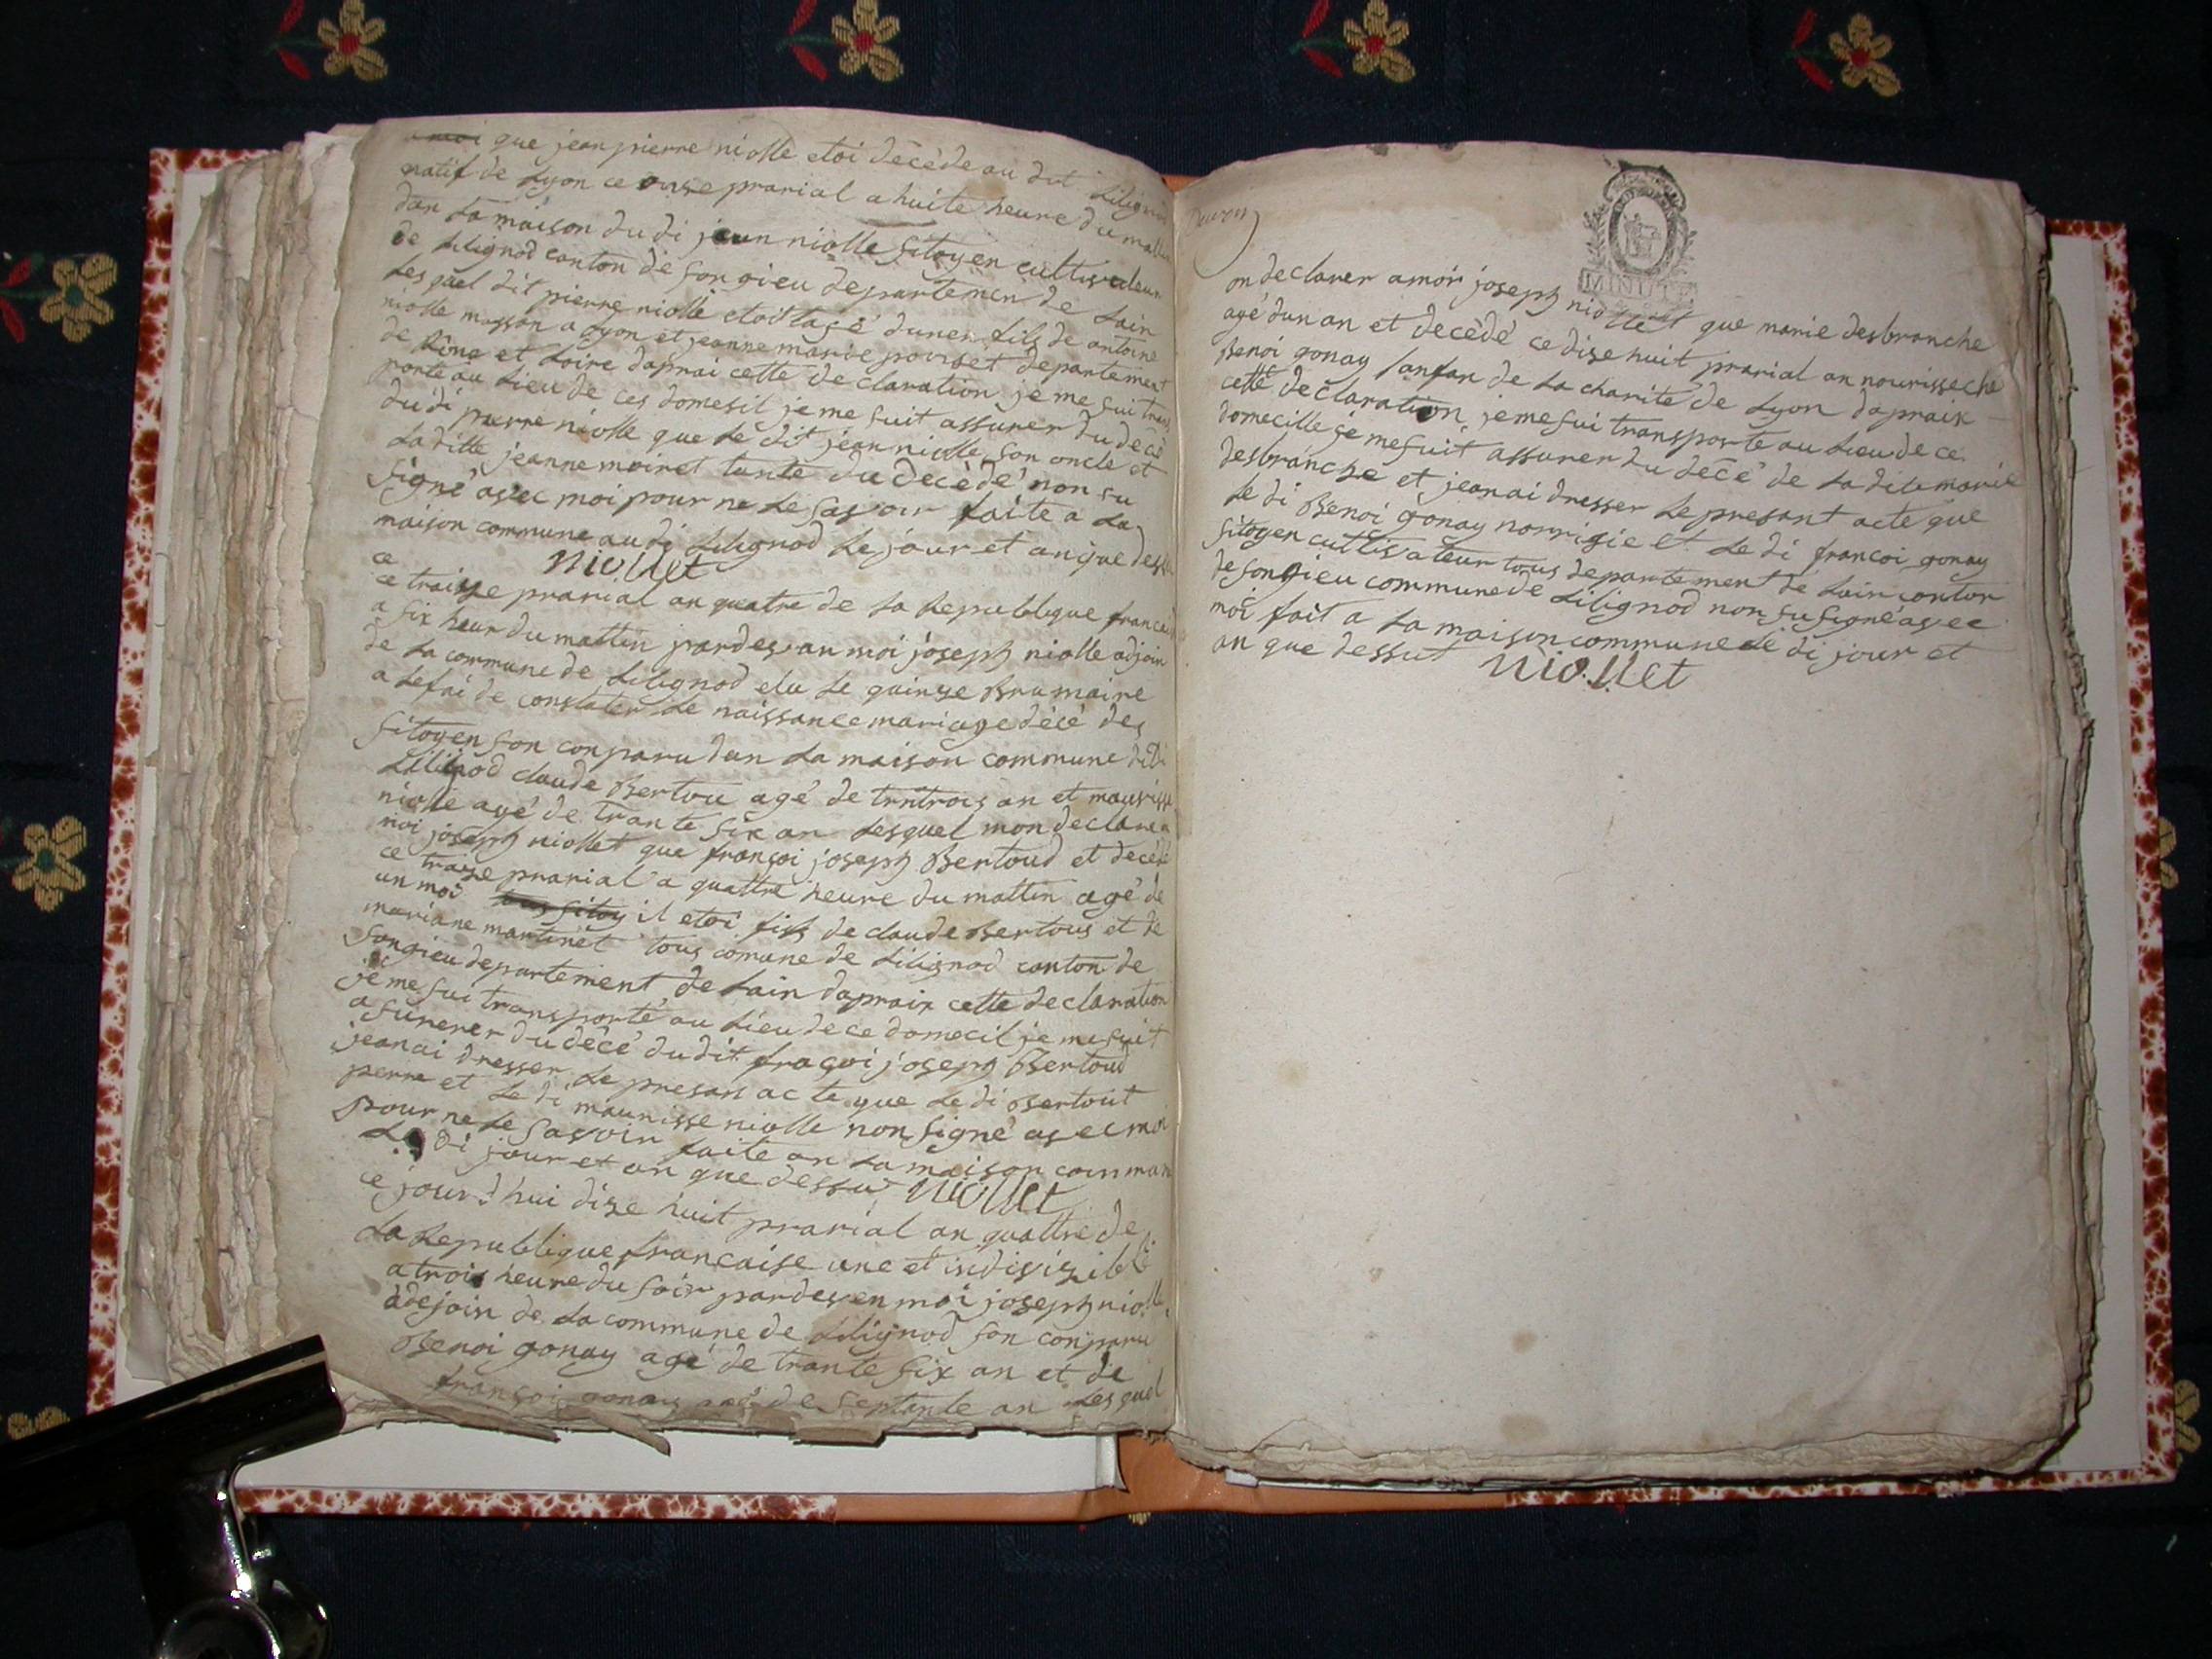 a moi que jean pierre niolle etoi décède au dit Lilignod
natif de Lyon ce onse prarial a huite heure du mattin
dan La maison du di jean niolle sitoyen cultivateur
de Lilignod canton de songieu departemen de Lain
Lesquel dit pierre niolle etoit agé dunen fils de antoine
niolle masson a Lyon et jeanne marie poinset departement
de Rône et Loire daprai cette declaration je me sui trans
porte au Lieu de ces domesil je me suit assurer du decé
du di pierre niolle que Le dit jean niolle son oncle et
La ditte jeanne moiret tante du decèdé non su
signé avec moi pour ne Le savoir faite a La
maison commune au di Lilignod Le jour et an que dessu
niollet
ce
ce traize prarial an quatre de La Republique francai
a six heur du mattin pardevan moi joseph niolle adjoin
de La commune de Lilignod elu Le quinze Brumaire
a Lefai de constater Le naissance mariage décé des
sitoyen son conparu dan La maison commune dudi
Lilignod claude Bertou agé de trntrois an et maurisse
niolle agé de trante six an Lesquel mon declarer a
moi joseph niollet que françoi joseph Bertoud et decédé
ce traize prarial a quattre heure du mattin agé de
un moi tous sitoy il etoi fils de claude Bertous et de
mariane martinet tous comune de Lilignod canton de
songieu departement de Lain dapraix cette declaration
je me sui transporté au Lieu de ce domecil je me suit
asurerer du décé dudit fraçoi joseph Bertoud
jeanai dresser Le presans acte que Le di Bertout
perre et Le di maurisse niolle non signé avec moi
pour ne Le savoir faite an La maison commun
Le di jour et an que dessut niollet
ce jourdhui dize huit prarial an quattre de
La Republique francaise une et indivizible
a trois heure du soir pardeven moi joseph nioll
adejoin de La commune de Lilignod son conparu
Benoi gonay agé de trante six an et de
françoi gonay agé de septante an Lesquel
MINUTE
on declarer amoi joseph niollet que marie desbranche
agé dun an et decédé ce dize huit prarial an nourisseche
Benoi gonay lanfan de La charité de Lyon dapraix
cette declaration je me sui transporte au Lieu de ce
domecille je me suit assurer du décé de La dite marie
desbranche et jeanai dresser Le presant acte que
Le di Benoi gonay norrigie et Le di francoi gonay
sitoyen cultivateur tous departement de Lain canton
de songieu commune de Lilignod non su signé avec
moi fait a La maison commune Le di jour et
an que dessut niollet